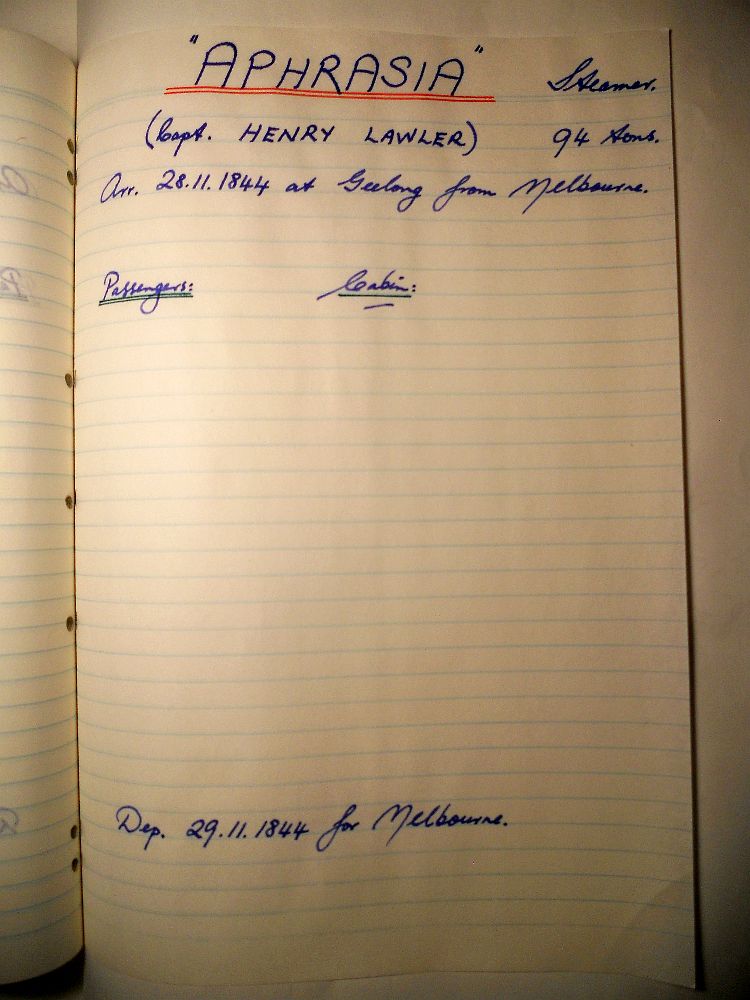 "APHRASIA" Steamer.
(Capt. HENRY LAWLER) 94 tons.
Arr. 28.11.1844 at Geelong from Melbourne.
Passengers: Cabin:
Dep. 29.11.1844 for Melbourne.